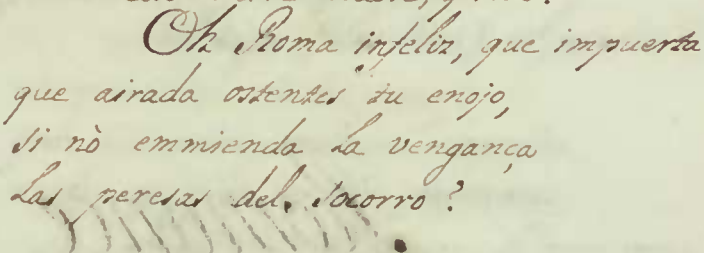 Oh Roma infeliz, que impuerta
que airada ostentes tu enojo,
si nò emmienda la vengança
las peresas del socorro?